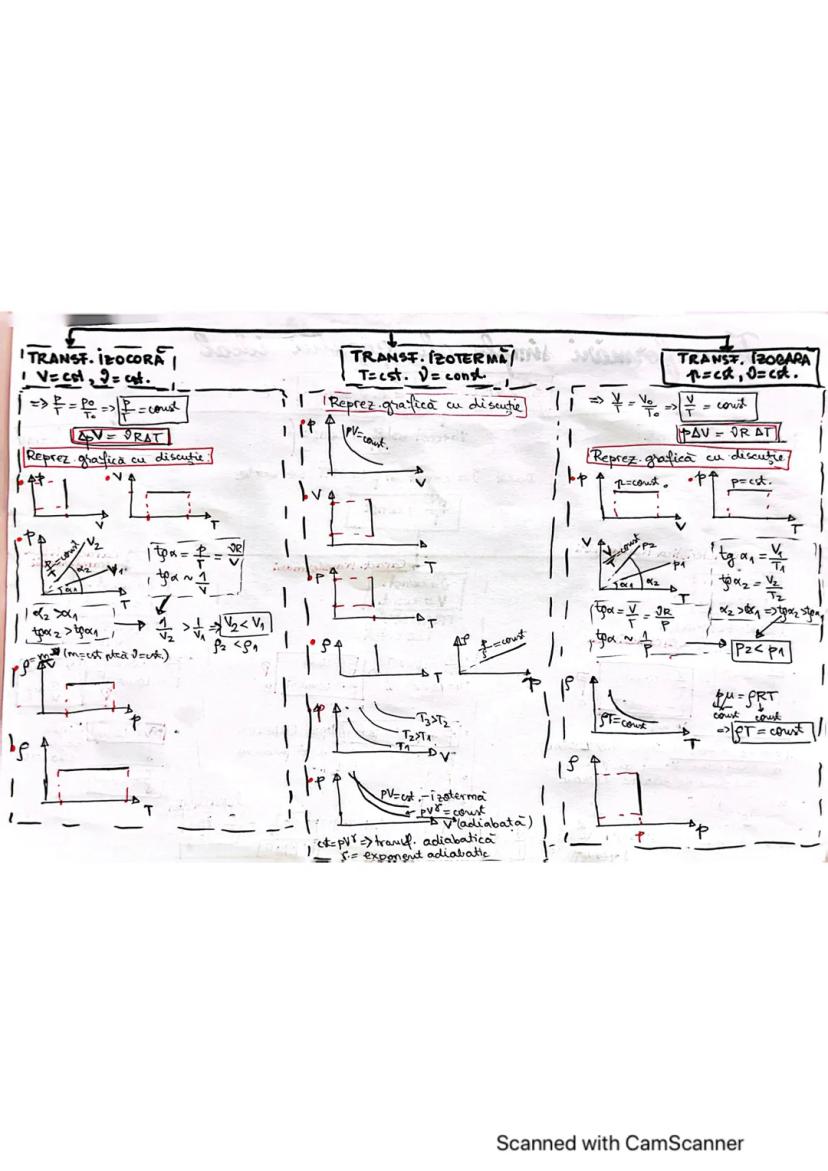 TRANSF. IZOCORĂ
V=cst, ϑ=cst.
=> p/T = p0/T0 => p/T = const
ΔpV = ϑRΔT
Reprez. grafică cu discuție:
p
V
V
T
p
p/T = const
V2
V1
α2
α1
T
tgα = p/T = ϑR/V
tgα ~ 1/V
α2 > α1
tgα2 > tgα1
1/V2 > 1/V1 => V2 < V1
ρ2 < ρ1
(m=cst ptcă ϑ=cst.)
ρ
p
ρ
T
TRANSF. IZOTERMĂ
T=cst. ϑ=const.
Reprez. grafică cu discuție
p
pV=const.
V
V
T
p
T
ρ
T
ρ
p/ρ = const
p
p
T3>T2
T2>T1
T1
V
p
pV=cst. - izotermă
pVγ = const
V (adiabată)
cst=pVγ => transf. adiabatică
γ = exponent adiabatic
TRANSF. IZOBARĂ
p=cst, ϑ=cst.
=> V/T = V0/T0 => V/T = const
pΔV = ϑRΔT
Reprez. grafică cu discuție
p
p=const.
V
p
p=cst.
T
V
V/T = const
p2
p1
α1
α2
T
tg α1 = V1/T1
tgα2 = V2/T2
α2 > α1 => tgα2 > tgα1
tgα = V/T = ϑR/p
tgα ~ 1/p
p2 < p1
ρ
ρT=const
T
pμ = ρRT
const const
=> ρT = const
ρ
p
p
Scanned with CamScanner